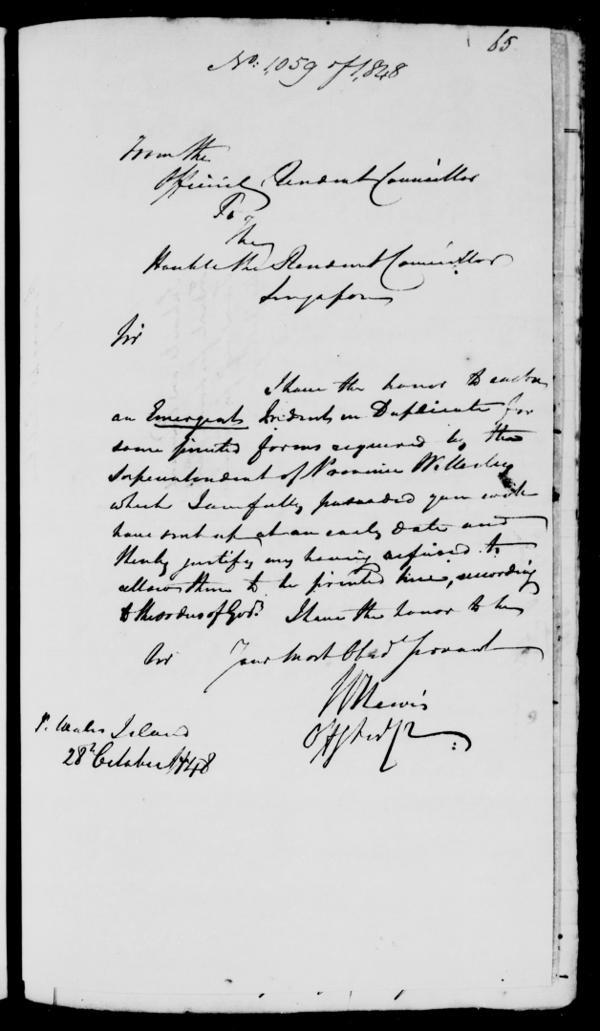 65
No: 1059 of 1848
From the
Official, Resident Councillor
To
The
Honble the Resident Councillor
Singapore
Sir
I have the honor to enclose
an Emergent Indent in Duplicate for
some printed forms required by the
Superintendent of Province Wellesley
which I am fully persuaded you will
have sent up at an early date and
thereby justify my having refused to
allow them to be printed here, according
to the orders of Govt. I have the honor to be
Sir Your Most Obedt Servant
W Lewis
P. Wales Island
28th October 1848